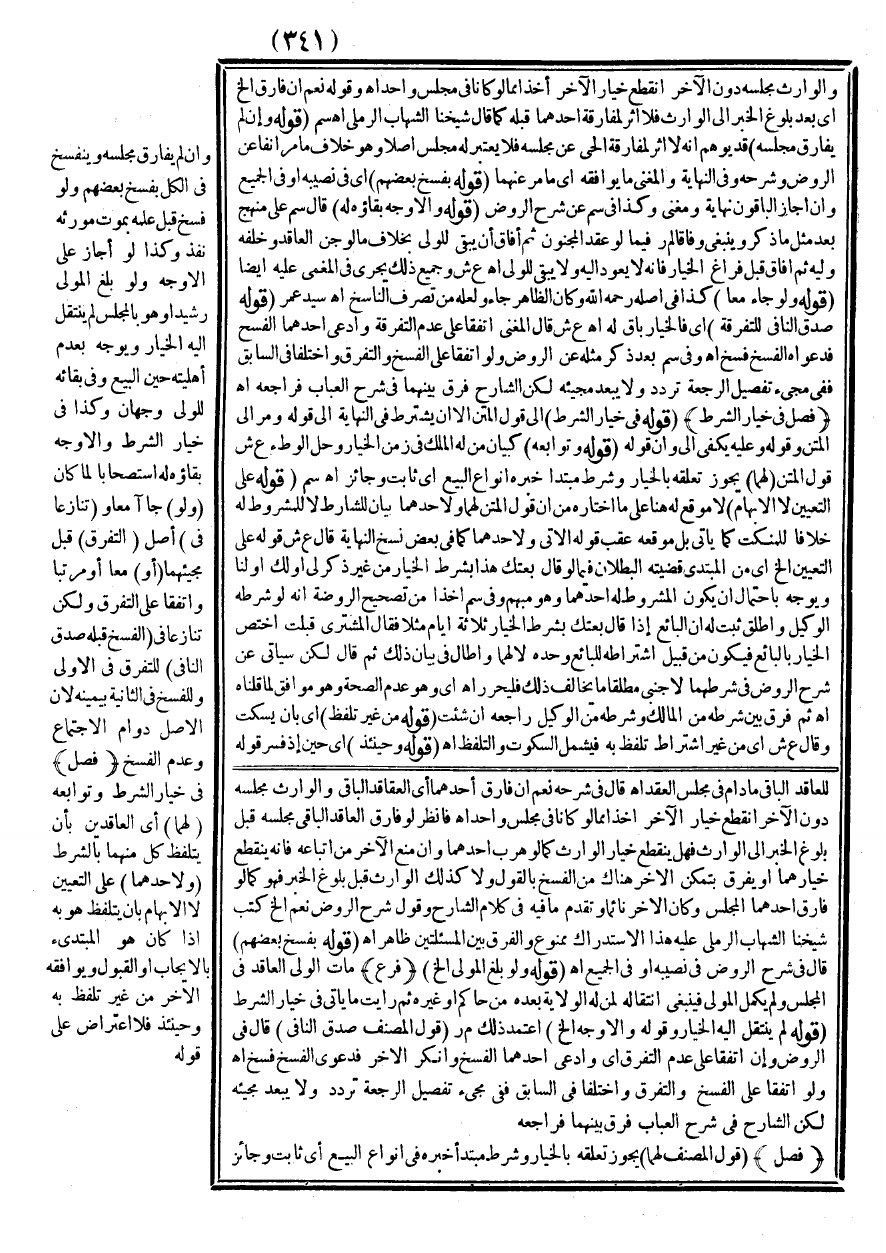 (٣٤١)
والوارث مجلسه دون الآخر انقطع خيار الآخر أخذا مما لو كانا فى مجلس واحد اه وقوله نعم ان فارق الخ
اى بعد بلوغ الخبر الى الوارث فلا اثر لمفارقة احدهما قبله كما قال شيخنا الشهاب الرملى اه سم (قوله وإن لم
يفارق مجلسه) قد يوهم انه لا اثر لمفارقة الحى عن مجلسه فلا يعتبر له مجلس اصلا وهو خلاف ما مر انفا عن
الروض وشرحه وفى النهاية والمغنى ما يوافقه اى ما مر عنهما (قوله بفسخ بعضهم) اى فى نصيبه او فى الجميع
وان اجاز الباقون نهاية ومغنى وكذا فى سم عن شرح الروض (قوله والاوجه بقاؤه له) قال سم على منهج
بعد مثل ماذكر وينبغى وفاقا لم ر فيما لو عقد المجنون ثم أفاق أن يبقى للولى بخلاف ما لو جن العاقد وخلفه
وليه ثم افاق قبل فراغ الخيار فانه لا يعود اليه ولا يبقى للولى اه ع ش وجميع ذلك يجرى فى المغمى عليه ايضا
(قوله ولو جاء معا) كذا فى اصله رحمه الله وكان الظاهر جاءا ولعله من تصرف الناسخ اه سيد عمر (قوله
صدق النافى للتفرقة) اى فالخيار باق له اه ع ش قال المغنى اتفقا على عدم التفرقة وادعى احدهما الفسخ
فدعواه الفسخ فسخ اه وفى سم بعد ذكر مثله عن الروض ولو اتفقا على الفسخ والتفرق واختلفا فى السابق
ففى مجىء تفصيل الرجعة تردد ولا يبعد مجيئه لكن الشارح فرق بينهما فى شرح العباب فراجعه اه
﴿فصل فى خيار الشرط﴾ (قوله فى خيار الشرط) الى قول المتن الا ان يشترط فى النهاية الى قوله ومر الى
المتن وقوله وعليه يكفى الى وان قوله (قوله وتوابعه) كبيان من له الملك فى زمن الخيار وحل الوطء ع ش
قول المتن (لهما) يجوز تعلقه بالخيار وشرط مبتدا خبره انواع البيع اى ثابت وجائز اه سم (قوله على
التعيين لا الابهام) لا موقع له هنا على ما اختاره من ان قول المتن لهما ولاحدهما بيان للشارط لا للمشروط له
خلافا للنكت كما ياتى بل موقعه عقب قوله الاتى ولاحدهما كما فى بعض نسخ النهاية قال ع ش قوله على
التعيين الخ اى من المبتدى قضيته البطلان فيما لو قال بعتك هذا بشرط الخيار من غير ذكر لى او لك او لنا
ويوجه باحتمال ان يكون المشروط له احدهما وهو مبهم وفى سم اخذا من تصحيح الروضة انه لو شرطه
الوكيل واطلق ثبت له ان البائع إذا قال بعتك بشرط الخيار ثلاثة ايام مثلا فقال المشترى قبلت اختص
الخيار بالبائع فيكون من قبيل اشتراطه للبائع وحده لا لهما واطال فى بيان ذلك ثم قال لكن سياتى عن
شرح الروض فى شرطهما لاجنبى مطلقا ما يخالف ذلك فليحرر اه اى وهو عدم الصحة وهو موافق لما قلناه
اه ثم فرق بين شرطه من المالك وشرطه من الوكيل راجعه ان شئت (قوله من غير تلفظ) اى بان يسكت
وقال ع ش اى من غير اشتراط تلفظ به فيشمل السكوت والتلفظ اه (قوله وحينئذ) اى حين إذ فسر قوله
للعاقد الباقى مادام فى مجلس العقد اه قال فى شرحه نعم ان فارق أحدهما أى العاقد الباقى والوارث مجلسه
دون الآخر انقطع خيار الآخر اخذا مما لو كانا فى مجلس واحد اه فانظر لو فارق العاقد الباقى مجلسه قبل
بلوغ الخبر الى الوارث فهل ينقطع خيار الوارث كما لو هرب احدهما وان منع الآخر من اتباعه فانه ينقطع
خيارهما او يفرق بتمكن الاخر هناك من الفسخ بالقول ولا كذلك الوارث قبل بلوغ الخبر فهو كما لو
فارق احدهما المجلس وكان الاخر نائما وتقدم ما فيه فى كلام الشارح وقول شرح الروض نعم الخ كتب
شيخنا الشهاب الرملى عليه هذا الاستدراك ممنوع والفرق بين المسئلتين ظاهر اه (قوله بفسخ بعضهم)
قال فى شرح الروض فى نصيبه او فى الجميع اه (قوله ولو بلغ المولى الخ) ﴿فرع﴾ مات الولى العاقد فى
المجلس ولم يكمل المولى فينبغى انتقاله لمن له الولاية بعده من حاكم او غيره ثم رايت ما ياتى فى خيار الشرط
(قوله لم ينتقل اليه الخيار وقوله والاوجه الخ) اعتمد ذلك م ر (قول المصنف صدق النافى) قال فى
الروض وإن اتفقا على عدم التفرق اى وادعى احدهما الفسخ وانكر الاخر فدعوى الفسخ فسخ اه
ولو اتفقا على الفسخ والتفرق واختلفا فى السابق ففى مجىء تفصيل الرجعة تردد ولا يبعد مجيئه
لكن الشارح فى شرح العباب فرق بينهما فراجعه
﴿فصل﴾ (قول المصنف لهما) يجوز تعلقه بالخيار وشرط مبتدأ خبره فى انواع البيع أى ثابت وجائز
وان لم يفارق مجلسه وينفسخ
فى الكل بفسخ بعضهم ولو
فسخ قبل علمه بموت مورثه
نفذ وكذا لو أجاز على
الاوجه ولو بلغ المولى
رشيدا وهو بالمجلس لم ينتقل
اليه الخيار ويوجه بعدم
أهليته حين البيع وفى بقائه
للولى وجهان وكذا فى
خيار الشرط والاوجه
بقاؤه له استصحابا لما كان
(ولو) جاآ معا و (تنازعا
فى) أصل (التفرق) قبل
مجيئهما (أو) معا أو مرتبا
واتفقا على التفرق ولكن
تنازعا فى (الفسخ قبله صدق
النافى) للتفرق فى الاولى
وللفسخ فى الثانية بيمينه لان
الاصل دوام الاجتماع
وعدم الفسخ ﴿فصل﴾
فى خيار الشرط وتوابعه
(لهما) أى العاقدين بأن
يتلفظ كل منهما بالشرط
(ولاحدهما) على التعيين
لا الابهام بان يتلفظ هو به
اذا كان هو المبتدىء
بالايجاب او القبول ويوافقه
الآخر من غير تلفظ به
وحينئذ فلا اعتراض على
قوله